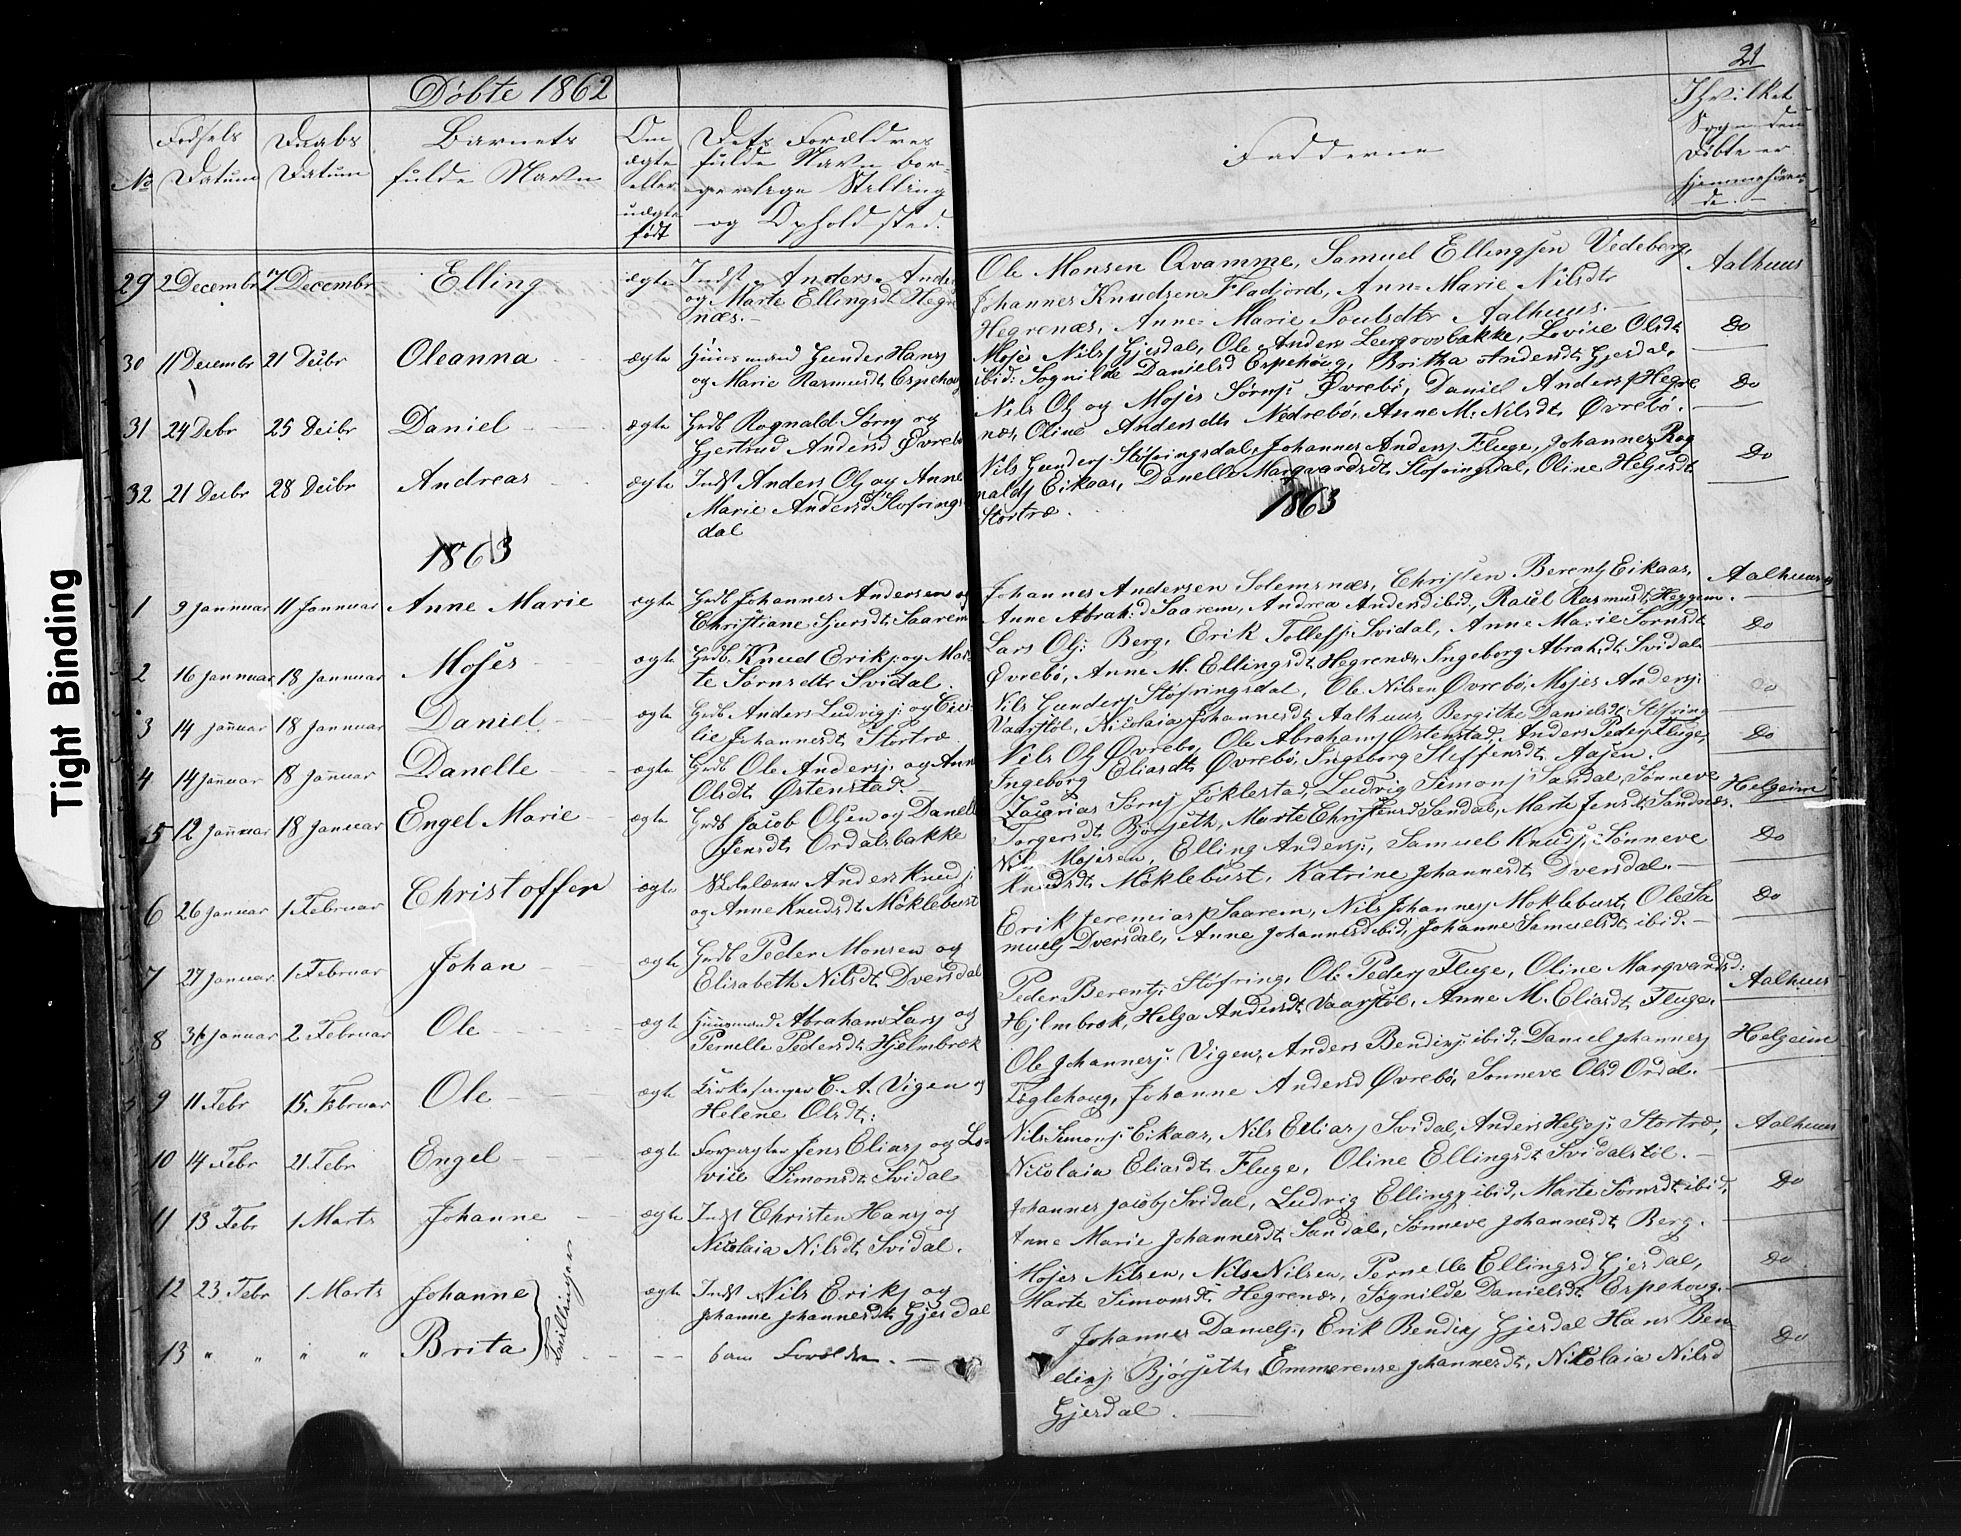 21
Döbte 1862
No
Fødsels Datum
Daabs Datum
Barnets fulde Navn
Om ægte eller uægte født
Dets Forældres fulde Navn borgerlige Stilling og Opholdsted.
Fadderne
I hvilket Sogn den Döbte er hjemmehørende.
29 2 Decembr 17 Decembr Elling ægte Indst Anders Anders
og Marte Ellingsdt Hegre
næs.
Ole Monsen Qvamme, Samuel Ellingsen Vedeberg, Aalhuus
Johannes Knudsen Fladjord, Ann-Marie Nilsdtr
Hegrenæs, Anne-Marie Poulsdtr Aalhuus.
30 11 Decembr 21 Decbr Oleanna ægte Huusmand Gunder Hansj
og Marie Rasmusdt Espehoug
Moses Nilsj Gjesdal, Ole Anders Leergrovbakke, Lovise Olsdt Do
ibid: Sognilde Danielsd Espehöug, Britha Andersdt Gjesdal,
31 24 Debr 25 Decbr Daniel ægte Grdb Rognald Sörnsj og
Gjertrud Andersd Øvrebö
Nils Olsj og Moses Sörnsj Øvrebö, Daniel Andersj Hegre Do
næs, Oline Andersdt Nedrebö, Anne M. Nilsdt Øvrebö.
32 21 Decbr 28 Decbr Andreas ægte Indst Anders Olsj og Anne
Marie Andersd Stöfrings
dal
Nils Gundersj Stöfringsdal, Johannes Andersj Fluge, Johannes Rog Do
naldsj Eikaas, Danelle Marqvardsdt Stöfringsdal, Oline Helgesdt
Stortræ.
1863
1863
1 9 Januar 11 Januar Anne Marie ægte Grdb Johannes Andersen og
Christiane Sjursdt Saarem
Johannes Andersen Solemsnæs, Christen Berentsj Eikaas, Aalhuus
Anne Abrah:d Saarem, Andrea Andersd ibid, Rasmusdt Heggem.
2 16 Januar 18 Januar Moses ægte Grdb. Knud Eriksj og Mar-
te Sörnsdtr Svidal.
Lars Olsj: Berg, Erik Tollefsj: Svidal, Anne Marie Sörnsdt Do
Øvrebö, Anne M. Ellingsdt Hegrenæs, Ingeborg Abrah.dt Svidal.
3 14 Januar 18 Januar Daniel ægte Grdb Anders Ludvigsj: og Ceci-
lie Johannesdt Stortræ.
Nils Gundersj Stöfringsdal, Ole Nilsen Øvrebö, Moses Andersj: Do
Vaarstöl, Nicolaia Johannesdt Aalhuus, Bergithe Danielsdt Stöfring
4 14 Januar 18 Januar Danelle ægte Grdb Ole Andersj. og Ann
Olsdt Østenstad.
Nils Olsj Øvrebö, Ole Abrahamsj Østenstad, Anders Pedersj Fluge, Do
Ingeborg Eliasdt Øvrebö, Ingeborg Steffensdt Aasen.
5 12 Januar 18 Januar Engel Marie ægte Grdb Jacob Olsen og Danelle
Jensdt Ordalsbakke
Zacarias Sörnsj Jöklestad, Ludvig Simonsj Sandal, Sönneve Helgeim
Torgersdt Björseth, Marte Christensd Sandal, Marte Jensdt Sandnæs.
6 26 Januar 1 Februar Christoffer ægte Skolelærer Anders Knudsj
og Anne Knudsdt Möklebust
Nils Mosesen, Elling Andersj:, Samuel Knudsj: Sönneve Do
Knudsdt Möklebust, Katrine Johannesdt Dversdal.
7 27 Januar 1 Februar Johan ægte Grdb Peder Monsen og
Elisabeth Nilsdt Dversdal
Erik Jeremiasj Saarem, Nils Johannesj Möklebust, Ole Sa Do
muelsj Dversdal, Anne Johannesd ibid, Johanne Samuelsdt ibid.
8 31 Januar 2 Februar Ole ægte Huusmand Abraham Larsj og
Pernelle Pedersdt Hjelmbræk
Peder Berentsj: Stöfring, Ole Pedersj Fluge, Oline Marqvardsd: Aalhuus
Hjlmbræk, Helga Andersdt Vaarstöl, Anne M. Eliasdt Fluge.
9 11 Febr 15. Februar Ole ægte Kirkesanger C. A. Vigen og
Helene Olsdt:
Ole Johannesj: Vigen, Anders Bendixsj: ibid, Daniel Johannesj Helgeim
Teglehoug, Johanne Andersd Øvrebö, Sönneve Olsd Ordal.
10 14 Febr 21 Febr Engel ægte Forpagter Jens Eliasj og Lo-
vise Simonsdt Svidal
Nils Simonsj Eikaas, Nils Eliasj Svidal, Anders Helgesj: Stortræ, Aalhuus
Nicolaia Eliasdt Fluge, Oline Ellingsdt Svidalstöl.
11 13 Febr 1 Marts Johanne ægte Indst Christen Hansj og
Nicolaia Nilsdt Svidal.
Johannes Jacobsj Svidal, Ludvig Ellingsj ibid, Marte Sörnsdt ibid, Do
Anne Marie Johannesdt Sandal, Sönneve Johannesdt Berg.
12 23 Febr 1 Marts Johanne ægte Indst Nils Eriksj og
Johanne Johannesdt Gjesdal
Moses Nilsen, Nils Nilsen, Pernelle Ellingsd Gjesdal, Do
Marte Simonsdt Hegrenæs, Sognilde Danielsdt Espehoug.
Tvillingar
13 " " " " Brita - - - - sam Forældre.
Johannes Danielsj:, Erik Bendixsj Gjesdal Hans Ben- Do
dixsj Björseth, Emmerense Johannesdt, Nikolaia Nilsd
Gjesdal.
Tight Binding